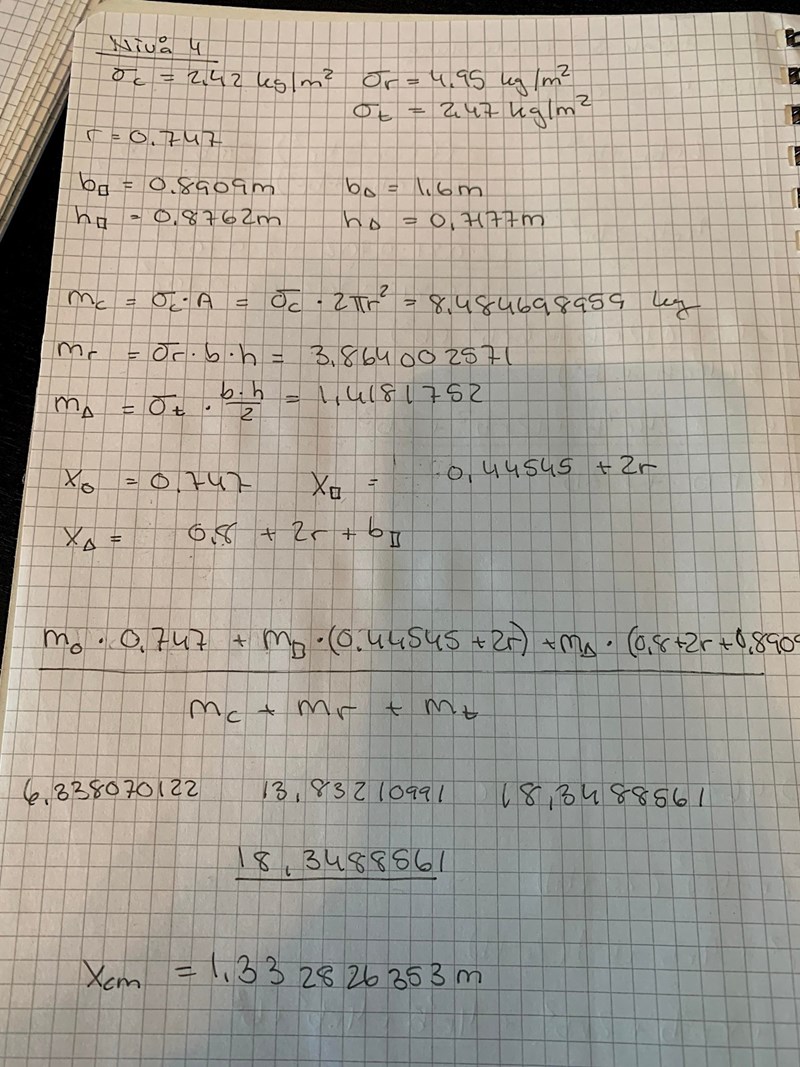 Nivå 4
σc = 2,42 kg/m² σr = 4.95 kg/m²
σt = 2,47 kg/m²
r = 0.747
b□ = 0.8909m b△ = 1.6m
h□ = 0.8762m h△ = 0,7177m
mc = σc·A = σc · 2πr² = 8.484698959 kg
mr = σr · b · h = 3,864002571
m△ = σt · b·h/2 = 1,4181752
xo = 0.747 x□ = 0,44545 + 2r
x△ = 0.8 + 2r + b□
mo · 0.747 + m□ · (0.44545 + 2r) + m△ · (0.8+2r+0.8909
mc + mr + mt
6,338070122 13,83210991 18,3488561
18,3488561
xcm = 1.332826353 m